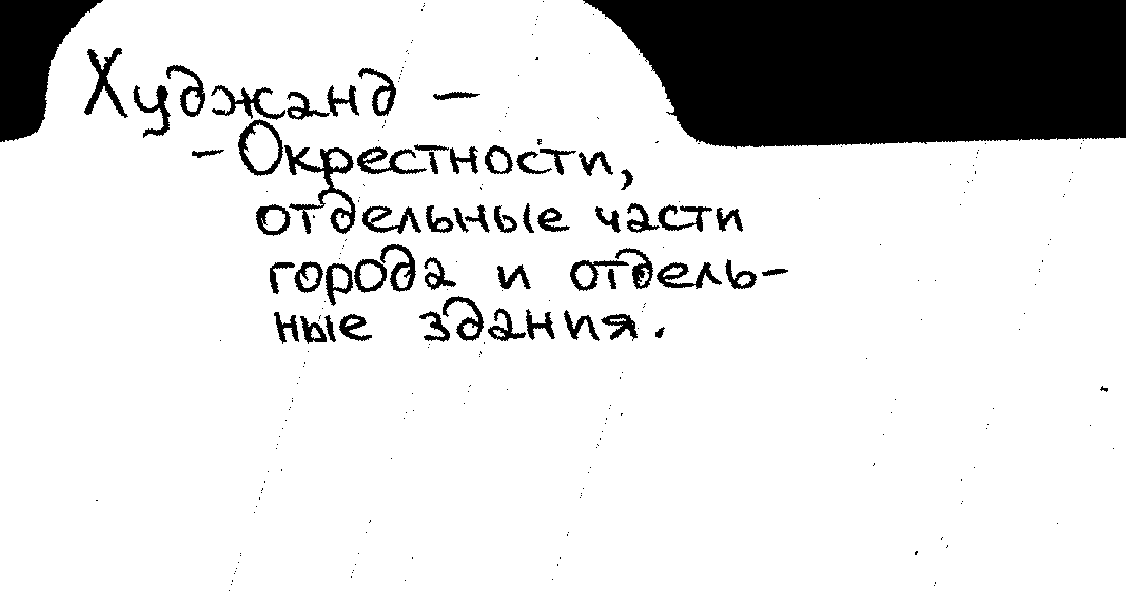 Худжанд –
– Окрестности,
отдельные части
города и отдель-
ные здания.